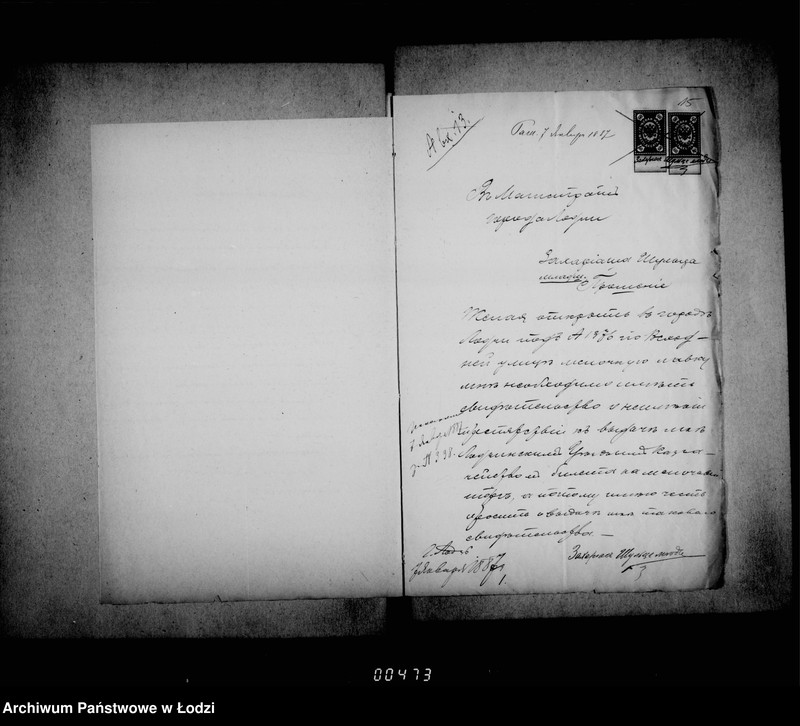 15
7 Января 1887
Въ Магистратъ
города Лодзи
Захаріаша Шульца
младш.
Прошеніе
Желая открыть въ городѣ
Лодзи подъ № 1376 по Всход-
ней улицѣ мелочную лавку
мнѣ необходимо имѣть
свидѣтельство о неимѣніи
препятствій къ выдачѣ мнѣ
Лодзинскимъ Уѣзднымъ Казна-
чействомъ билета на мелочный
торгъ, а потому имѣю честь
просить о выдачѣ мнѣ таковаго
свидѣтельства —
7 Января 1887
г. Лодзь
7 Января 1887
Захариа Шульц
00473
Archiwum Państwowe w Łodzi